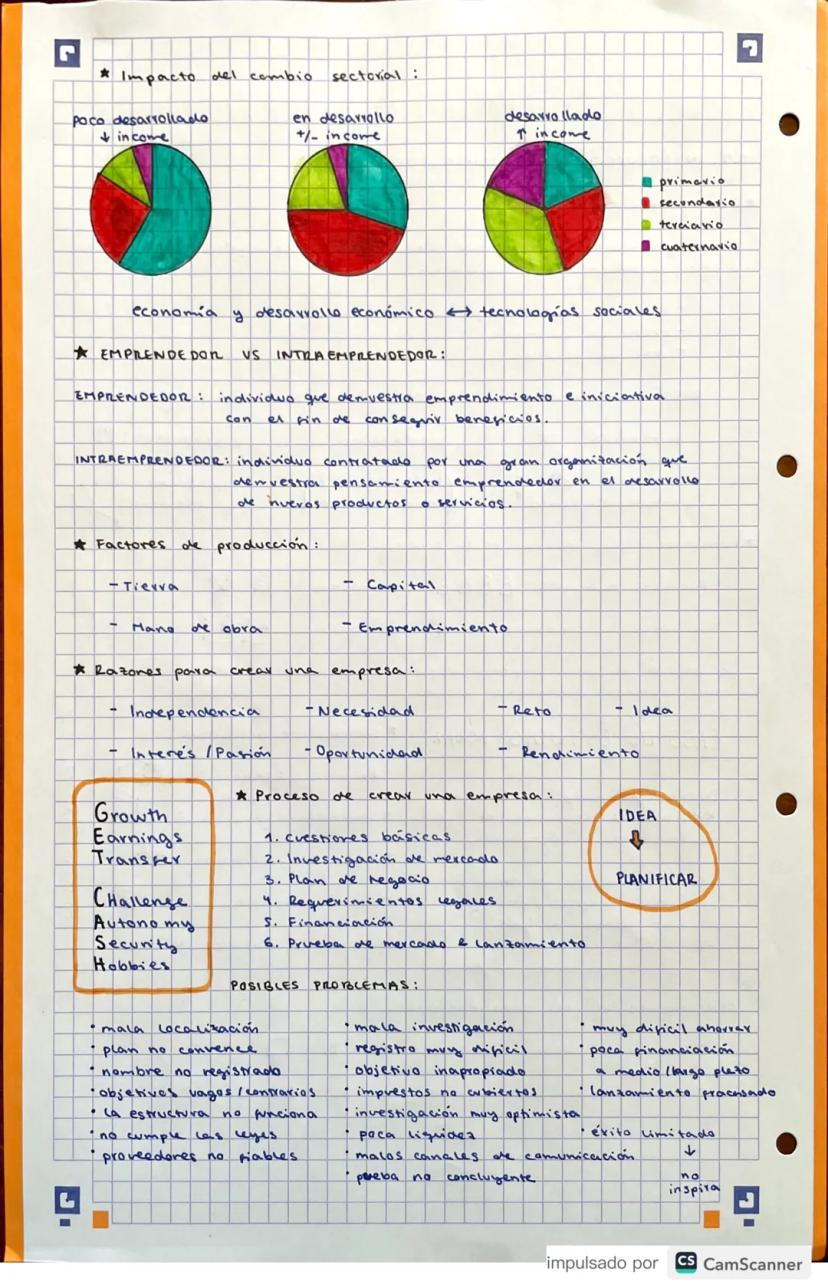 ★ Impacto del cambio sectorial:
poco desarrollado
↓ income
en desarrollo
+/- income
desarrollado
↑ income
primario
secundario
terciario
cuaternario
economía y desarrollo económico ↔ tecnologías sociales
★ EMPRENDEDOR VS INTRAEMPRENDEDOR:
EMPRENDEDOR: individuo que demuestra emprendimiento e iniciativa
con el fin de conseguir beneficios.
INTRAEMPRENDEDOR: individuo contratado por una gran organización que
demuestra pensamiento emprendedor en el desarrollo
de nuevos productos o servicios.
★ Factores de producción:
- Tierra - Capital
- Mano de obra - Emprendimiento
★ Razones para crear una empresa:
- Independencia - Necesidad - Reto - Idea
- Interés / Pasión - Oportunidad - Rendimiento
Growth
Earnings
Transfer
CHallenge
Autonomy
Security
Hobbies
★ Proceso de crear una empresa:
1. Cuestiones básicas
2. Investigación de mercado
3. Plan de negocio
4. Requerimientos legales
5. Financiación
6. Prueba de mercado & lanzamiento
IDEA
↓
PLANIFICAR
POSIBLES PROBLEMAS:
• mala localización
• plan no convence
• nombre no registrado
• objetivos vagos/contrarios
• la estructura no funciona
• no cumple las leyes
• proveedores no fiables
• mala investigación
• registro muy difícil
• objetivo inapropiado
• impuestos no cubiertos
• investigación muy optimista
• poca liquidez
• malos canales de comunicación
• prueba no concluyente
• muy difícil ahorrar
• poca financiación
a medio/largo plazo
• lanzamiento fracasado
• éxito limitado
↓
no
inspira
impulsado por CS CamScanner